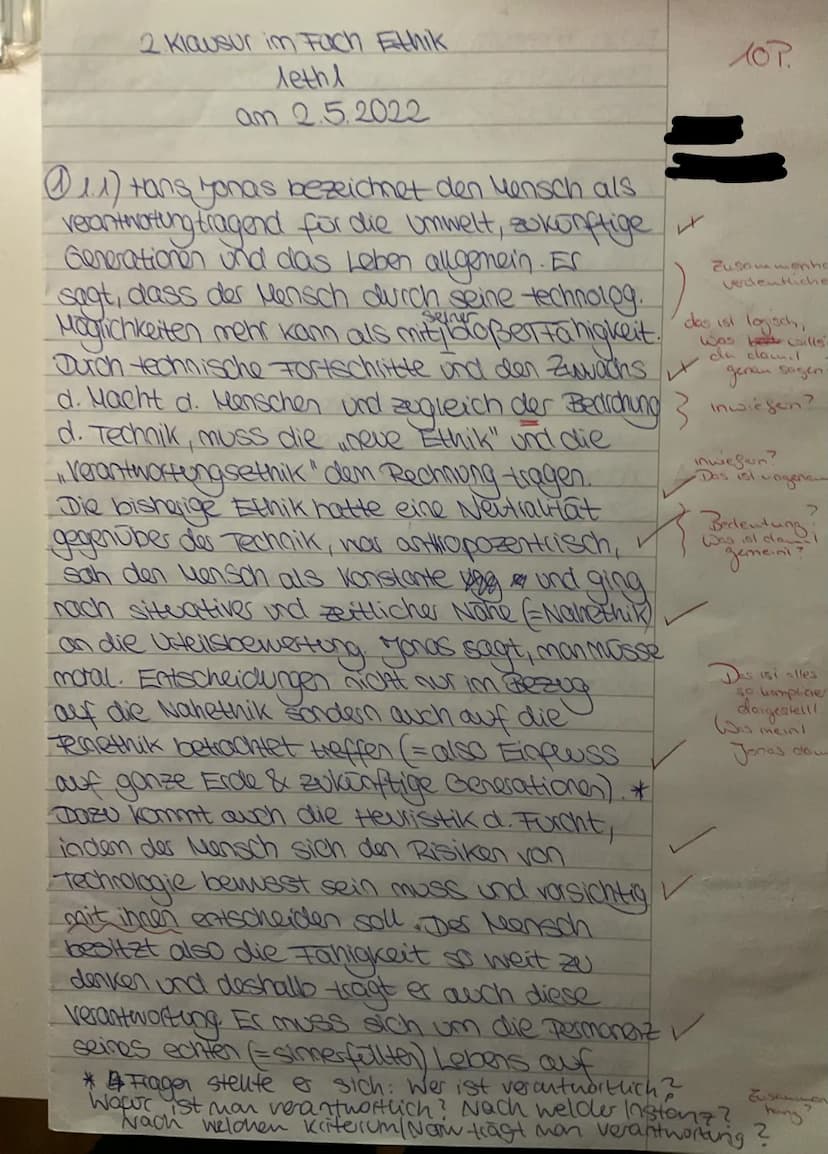 2 Klausur im Fach Ethik
1eth1
am 2.5.2022
10P.
① 1.1) Hans Jonas bezeichnet den Mensch als
verantwortungtragend für die Umwelt, zukünftige
Generationen und das Leben allgemein. Er
sagt, dass der Mensch durch seine technolog.
Möglichkeiten mehr kann als mit seiner bloßer Fähigkeit.
Durch technische Fortschritte und den Zuwachs
d. Macht d. Menschen und zugleich der Bedrohung
d. Technik, muss die „neue Ethik" und die
„Verantwortungsethik" dem Rechnung tragen.
Die bisherige Ethik hatte eine Neutralität
gegenüber der Technik, war anthropozentrisch,
sah den Mensch als Konstante und ging
nach situativer und zeitlicher Nähe (=Nahethik)
an die Urteilsbewertung. Jonas sagt, man müsse
moral. Entscheidungen nicht nur im Bezug
auf die Nahethik sondern auch auf die
Fernethik betrachtet treffen (=also Einfluss
auf ganze Erde & zukünftige Generationen). *
Dazu kommt auch die Heuristik d. Furcht,
indem der Mensch sich den Risiken von
Technologie bewusst sein muss und vorsichtig
mit ihnen entscheiden soll. Der Mensch
besitzt also die Fähigkeit so weit zu
denken und deshalb trägt er auch diese
Verantwortung. Er muss sich um die Permanenz
seines echten (=sinnerfüllten) Lebens auf
* 4 Fragen stellte er sich: Wer ist verantwortlich?
Wofür ist man verantwortlich? Nach welcher Instanz?
Nach welchen Kriterium/Norm trägt man verantwortung?
das ist logisch,
was willst
du damit
genau sagen
inwiefern?
inwiefern?
Das ist
Bedeutung?
Was ist damit
gemeint?
Das ist alles
so
dargestellt
Was meint
Jonas